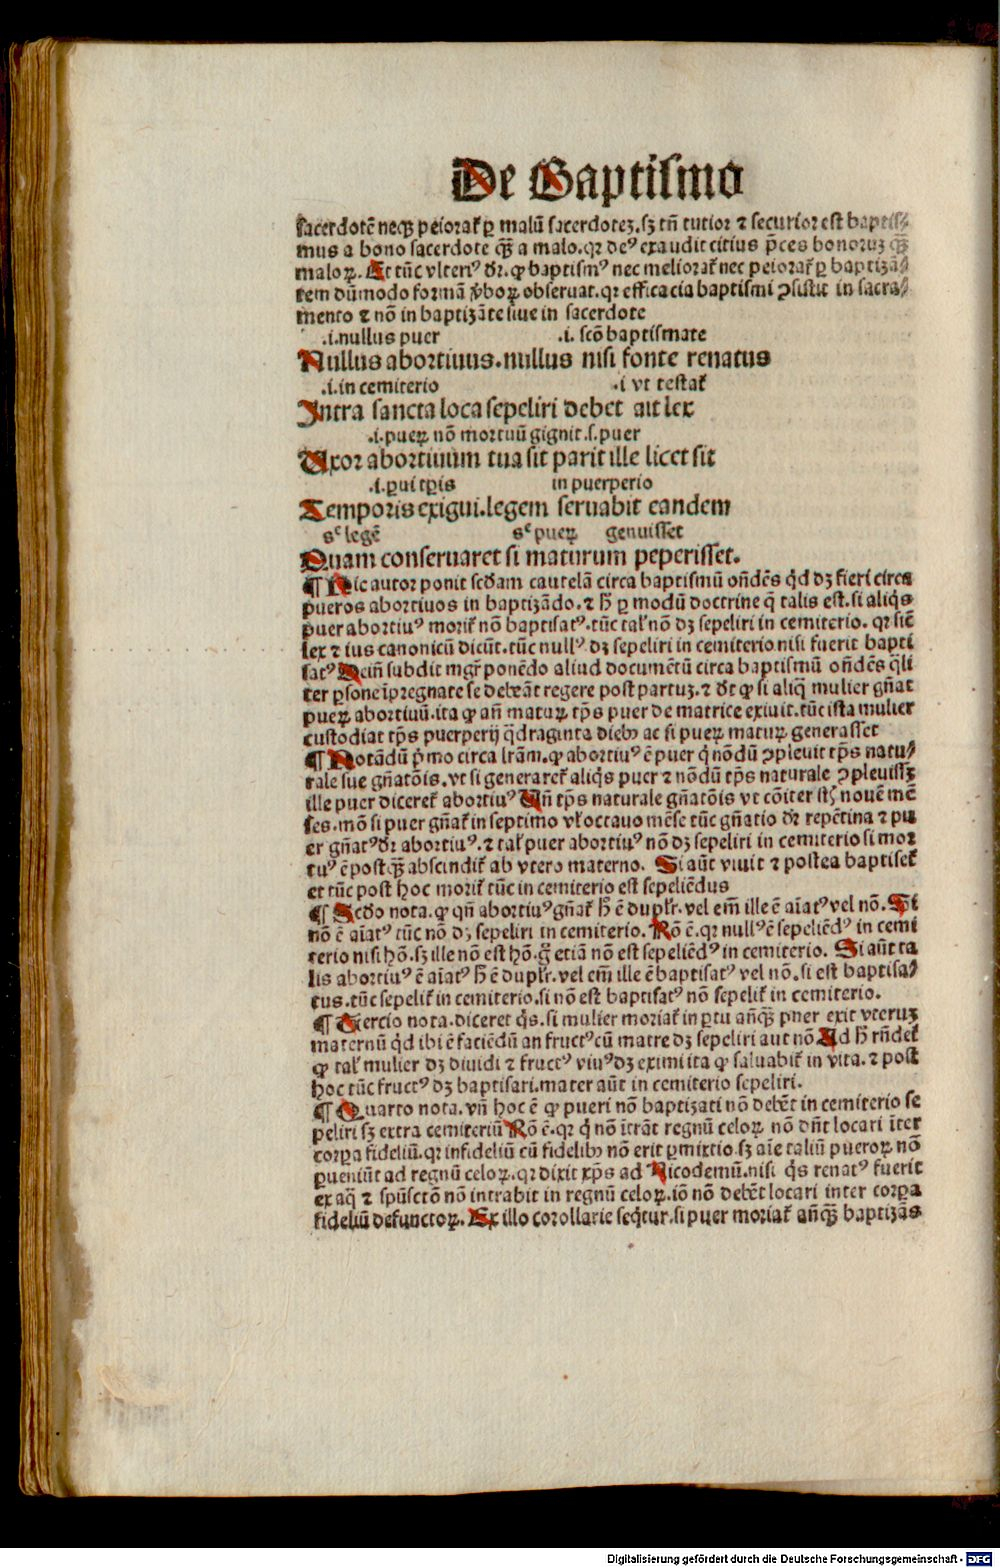 De Baptismo
sacerdotē neqꝫ peiorat᷑ ꝑ malū sacerdoteꝫ.sꝫ tn̄ tutior ⁊ securior est baptis⸗
mus a bono sacerdote qꝫ̄ a malo.qꝛ deꝰ exaudit citius p̄ces bonoruꝫ qꝫ̄
maloꝝ. Et tūc vlteriꝰ dr̄.ꝙ baptismꝰ nec meliorat᷑ nec peiorat᷑ ꝑ baptizā⸗
tem dūmodo formā v̓boꝝ obseruat.qꝛ efficacia baptismi ꝯsistit in sacra⸗
mento ⁊ nō in baptizāte siue in sacerdote
.i.nullus puer .i. scō baptismate
Nullus abortiuus.nullus nisi fonte renatus
.i.in cemiterio .i vt testat᷑
Intra sancta loca sepeliri debet ait lex
.i.pueꝝ nō mortuū gignit.s.puer
Uxor abortiuum tua sit parit ille licet sit
.i.ꝑui tp̄is in puerperio
Temporis exigui.legem seruabit eandem
sꝫ legē sꝫ pueꝝ genuisset
Quam conseruaret si maturum peperisset.
¶ Hic autor ponit scd̓am cautelā circa baptismū on̄dēs qd̓ dꝫ fieri circa
pueros abortiuos in baptizādo.⁊ h̄ ꝑ modū doctrine q̄ talis est.si aliq̓s
puer abortiuꝰ morit᷑ nō baptisatꝰ.tūc tal̓ nō dꝫ sepeliri in cemiterio. qꝛ sic̄
lex ⁊ ius canonicū dicūt.tūc nullꝰ dꝫ sepeliri in cemiterio nisi fuerit bapti
satꝰ Dein̄ subdit mgr̄ ponēdo aliud documētū circa baptismū on̄dēs q̄li
ter ꝑsone īpregnate se debeāt regere post partuꝫ.⁊ dt̓ ꝙ si aliq̄ mulier gn̄at
pueꝝ abortiuū.ita ꝙ an̄ matuꝝ tp̄s puer de matrice exiuit.tūc ista mulier
custodiat tp̄s puerperij q̄draginta diebꝰ ac si pueꝝ matuꝝ generasset
¶ Notādū p̓mo circa lr̄am.ꝙ abortiuꝰ ē puer q̓ nōdū ꝯpleuit tp̄s natu⸗
rale sue gn̄atōis.vt si generaret᷑ aliq̓s puer ⁊ nōdū tp̄s naturale ꝯpleuissꝫ
ille puer diceret᷑ abortiuꝰ Un̄ tp̄s naturale gn̄atōis vt cōiter st̄ nouē mē
ses.mō si puer gn̄at᷑ in septimo vl̓ octauo mēse tūc gn̄atio dr̄ repētina ⁊ pu
er gn̄atꝰ dr̄ abortiuꝰ.⁊ tal̓ puer abortiuꝰ nō dꝫ sepeliri in cemiterio si mor
tuꝰ ē postqꝫ̄ abscindit᷑ ab vtero materno. Si aūt viuit ⁊ postea baptiset᷑
et tūc post hoc morit᷑ tūc in cemiterio est sepeliēdus
¶ Scd̓o nota.ꝙ qn̄ abortiuꝰ gn̄at᷑ h̄ ē duplr̄.vel em̄ ille ē aīatꝰ vel nō. Si
nō ē aīatꝰ tūc nō dꝫ sepeliri in cemiterio. Rō ē.qꝛ nullꝰ ē sepeliēdꝰ in cemi
terio nisi hō.sꝫ ille nō est hō.g̊ etiā nō est sepeliēdꝰ in cemiterio. Si aūt ta
lis abortiuꝰ ē aīatꝰ h̄ ē duplr̄.vel em̄ ille ē baptisatꝰ vel nō.si est baptisa⸗
tus.tūc sepelit᷑ in cemiterio.si nō est baptisatꝰ nō sepelit᷑ in cemiterio.
¶ Tercio nota.diceret q̓s.si mulier moriat᷑ in ꝑtu an̄qꝫ̄ puer exit vteruꝫ
maternū qd̓ ibi ē faciēdū an fructꝰ cū matre dꝫ sepeliri aut nō Ad h̄ rn̄det᷑
ꝙ tal̓ mulier dꝫ diuidi ⁊ fructꝰ viuꝰ dꝫ eximi ita ꝙ saluabit᷑ in vita.⁊ post
hoc tūc fructꝰ dꝫ baptisari.mater aūt in cemiterio sepeliri.
¶ Quarto nota.vn̄ hoc ē ꝙ pueri nō baptizati nō debēt in cemiterio se
peliri sꝫ extra cemiteriū Rō ē.qꝛ q̓ nō ītrāt regnū celoꝝ nō dn̄t locari īter
corꝑa fideliū.qꝛ infideliū cū fidelibꝰ nō erit ꝑmixtio.sꝫ aīe taliū pueroꝝ nō
ꝑueniūt ad regnū celoꝝ.qꝛ dixit xp̄s ad Nicodemū.nisi q̓s renatꝰ fuerit
ex aq̄ ⁊ spūsctō nō intrabit in regnū celoꝝ.iō nō debēt locari inter corꝑa
fideliū defunctoꝝ. Ex illo corollarie seq̓tur.si puer moriat᷑ an̄qꝫ̄ baptizās
Digitalisierung gefördert durch die Deutsche Forschungsgemeinschaft - DFG